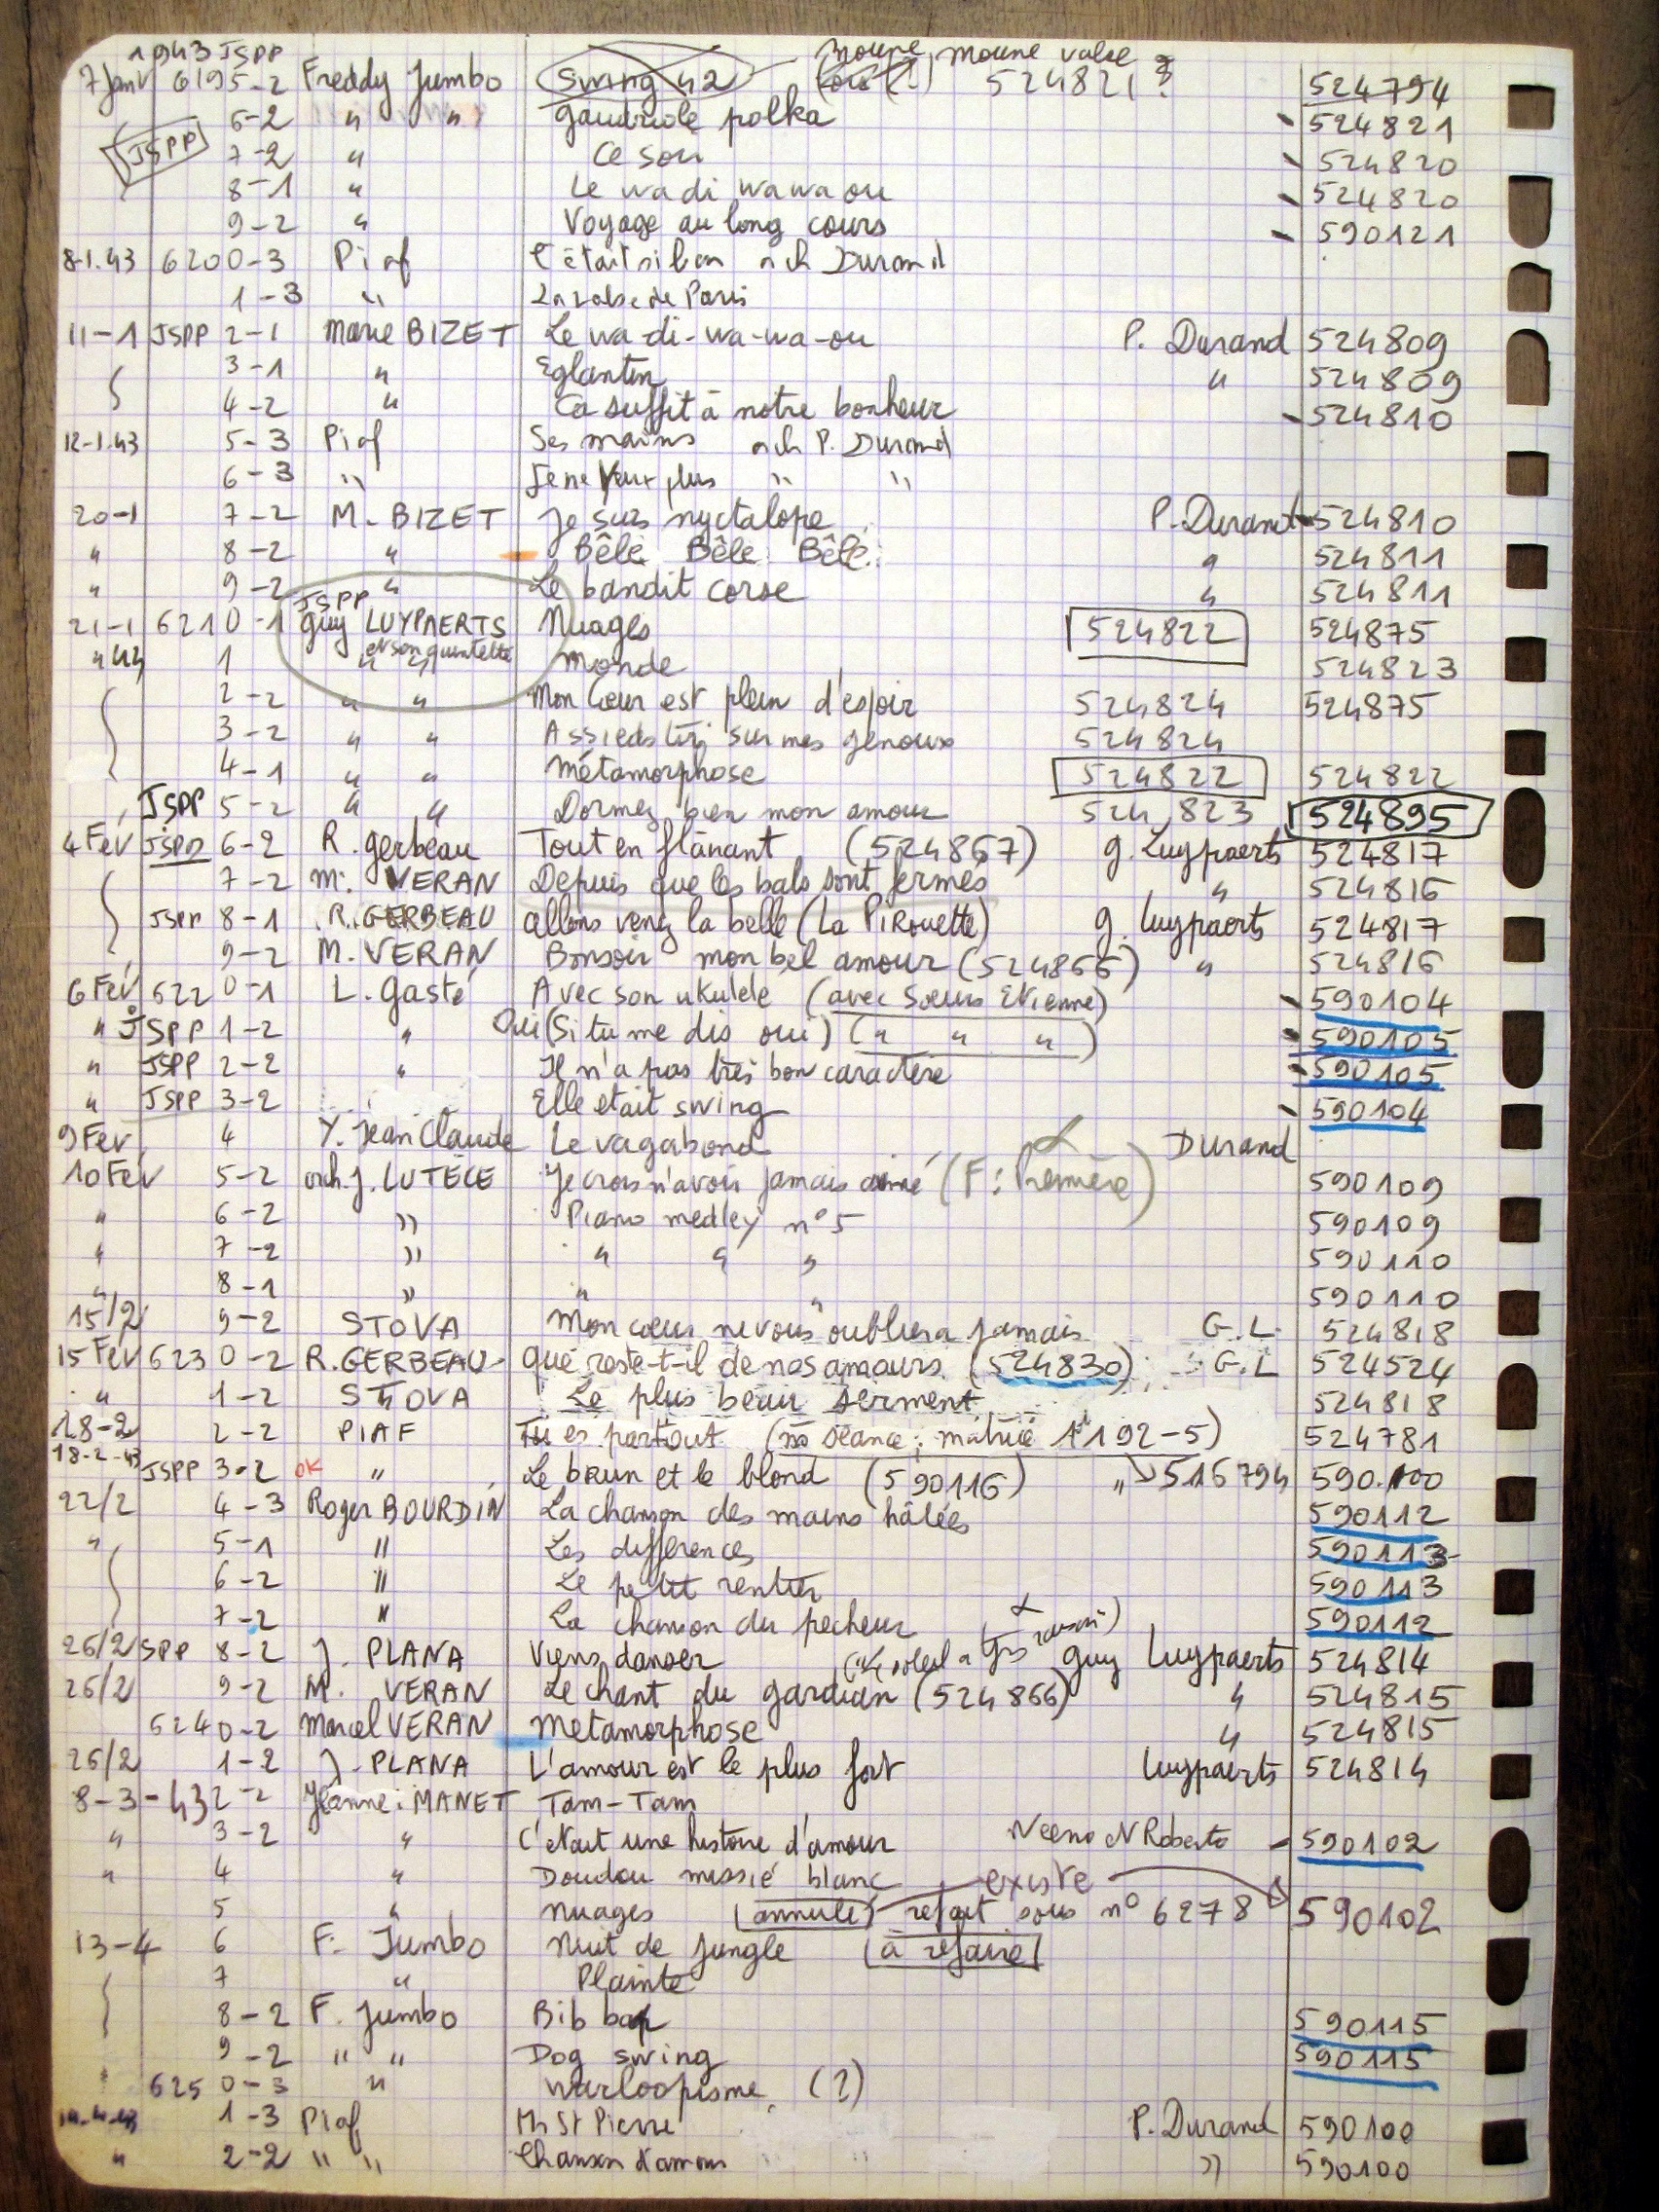 1943 JSPP moune, moune valse
7 Janv 6195-2 Freddy Jumbo Swing 42 524821 ? 524794
6-2 " " Gaudriole polka - 524821
JSPP 7-2 " Ce soir - 524820
8-1 " Le wa di wa wa ou - 524820
9-2 " Voyage au long cours - 590121
8-1.43 6200-3 Piaf C'était si bon och Durand
1-3 " La valse de Paris
11-1 JSPP 2-1 Marie BIZET Le wa-di-wa-wa-ou P. Durand 524809
3-1 " Eglantin " 524809
4-2 " Ca suffit à notre bonheur - 524810
12-1.43 5-3 Piaf Ses mains och P. Durand
6-3 " Je ne veux plus " "
20-1 7-2 M. BIZET Je suis nyctalope P. Durand - 524810
" 8-2 " Bêle Bêle Bêle " 524811
" 9-2 " Le bandit corse " 524811
JSPP
21-1 6210-1 Guy LUYPAERTS Nuages 524822 524875
et son quintette
" 43 1 " " Monde 524823
2-2 " " Mon Cœur est plein d'espoir 524824 524875
3-2 " " Assieds toi sur mes genoux 524824
4-1 " " Métamorphose 524822 524822
JSPP 5-2 " " Dormez bien mon amour 524823 524895
4 Fev JSPP 6-2 R. Gerbeau Tout en flânant (524867) G. Luypaerts 524817
7-2 M. VERAN Depuis que les bals sont fermés " 524816
JSPP 8-1 R. GERBEAU Allons venez la belle (La PiRouette) G. Luypaerts 524817
9-2 M. VERAN Bonsoir mon bel amour (524866) " 524816
6 Fev 6220-1 L. Gasté Avec son ukulele (avec Sœurs Etienne) - 590104
" JSPP 1-2 " Oui (Si tu me dis oui) (" " ") - 590105
" JSPP 2-2 " Il n'a pas très bon caractère - 590105
" JSPP 3-2 Elle etait swing - 590104
9 Fev 4 Y. Jean Claude Le vagabond Durand
10 Fev 5-2 orch. J. LUTÈCE Je crois n'avoir jamais aimé (F: Première) 590109
" 6-2 " Piano medley n° 5 590109
" 7-2 " " " " 590110
" 8-1 " " " 590110
15/2 9-2 STOVA Mon cœur ne vous oubliera jamais G.L. 524818
15 Fev 6230-2 R. GERBEAU Que reste-t-il de nos amours (524830) G.L 524524
" 1-2 STOVA Le plus beau serment 524818
18-2 2-2 PIAF Tu es partout (no séance; matrice 192-5) 524781
18-2-43 JSPP 3-2 OK " Le brun et le blond (590116) " 516794 590.100
22/2 4-3 Roger BOURDIN La chanson des mains hâlées 590112
" 5-1 " Les differences 590113
6-2 " Le petit rentier 590113
7-2 " La chanson du pecheur 590112
26/2 SPP 8-2 J. PLANA Viens danser (le soleil a tjrs raison) Guy Luypaerts 524814
26/2 9-2 M. VERAN Le chant du gardian (524866) " 524815
6240-2 Marcel VERAN Metamorphose " 524815
26/2 1-2 J. PLANA L'amour est le plus fort Luypaerts 524814
8-3-43 2-2 Jeanne MANET Tam-Tam
" 3-2 " C'etait une histoire d'amour Neeno N Roberto - 590102
" 4 " Doudou missié blanc existe
5 " Nuages (annulé) refait sous n° 6278 590102
13-4 6 F. Jumbo Nuit de jungle (à refaire)
7 " Plainte
8-2 F. Jumbo Bib bop 590115
9-2 " " Dog swing 590115
6250-3 " Warloopisme (?)
14-4-43 1-3 Piaf Mr St Pierre P. Durand 590100
" 2-2 " " Chanson d'amour " 590100